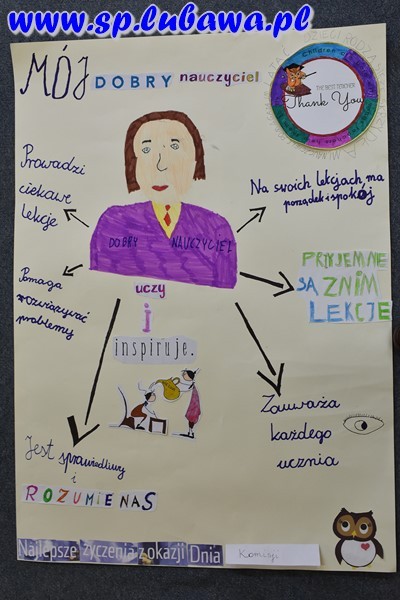 www.sp.lubawa.pl
MÓJ DOBRY nauczyciel
THE BEST TEACHER
Thank You
Prowadzi
ciekawe
lekcje
Na swoich lekcjach ma
porządek i spokój
DOBRY NAUCZYCIEL
Pomaga
rozwiązywać
problemy
uczy
i
inspiruje.
PRZYJEMNE
SĄ Z NIM
LEKCJE
Zauważa
każdego
ucznia
Jest sprawiedliwy
i
ROZUMIE NAS
Najlepsze życzenia z okazji Dnia Komisji